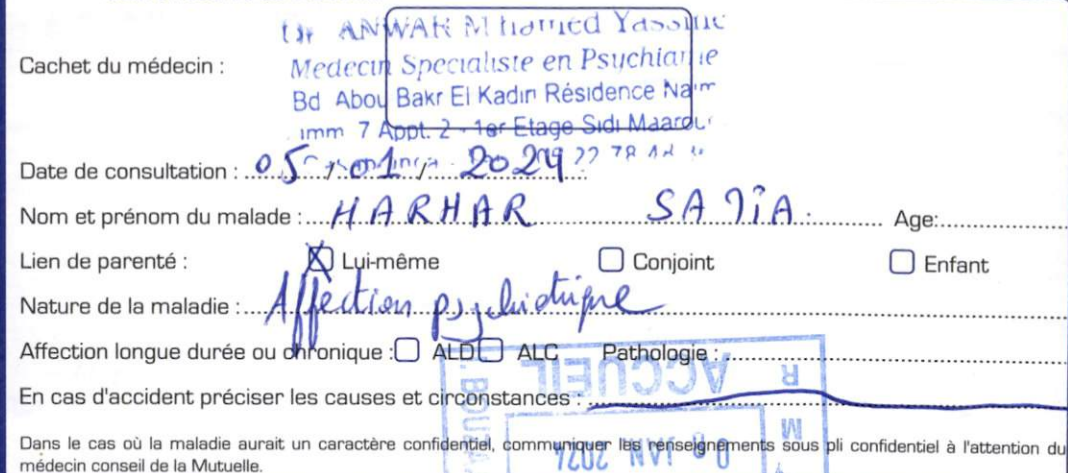 Dr ANWAR M'hamed Yassine
Cachet du médecin : Medecin Specialiste en Psychiatrie
Bd Abou Bakr El Kadiri Résidence Naim
imm 7 Appt. 2 - 1er Etage Sidi Maarouf
Date de consultation : 05 / 01 / 2024
Nom et prénom du malade : HARHAR Age:
Lien de parenté : Lui-même Conjoint Enfant
Nature de la maladie : Affection psychiatrique
Affection longue durée ou chronique : ALD ALC Pathologie :
ACCUEIL
En cas d'accident préciser les causes et circonstances :
08 JAN 2024
Dans le cas où la maladie aurait un caractère confidentiel, communiquer les renseignements sous pli confidentiel à l'attention du
médecin conseil de la Mutuelle.